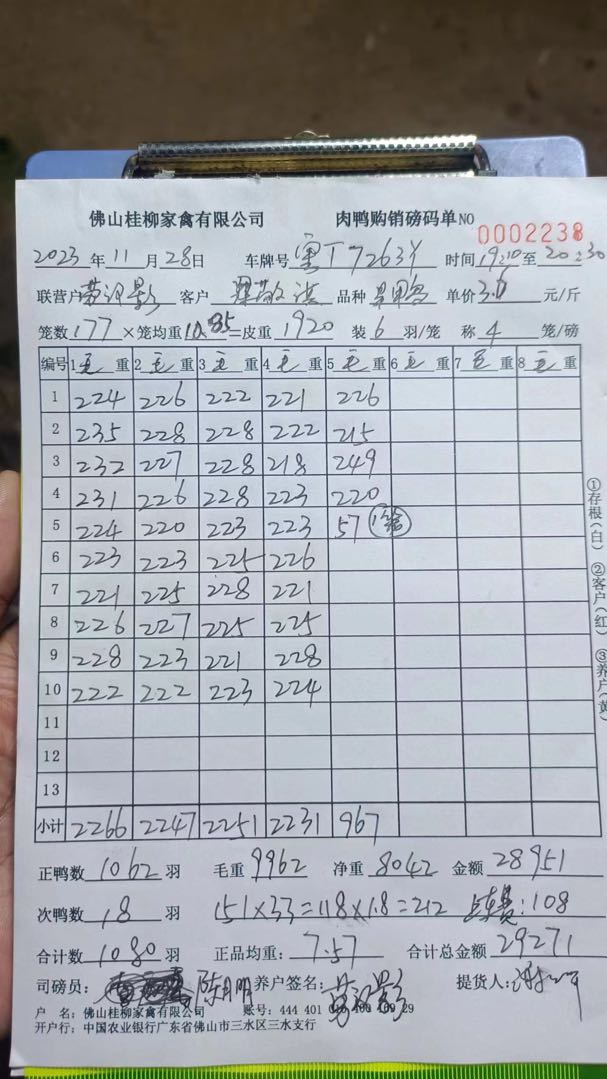 佛山桂柳家禽有限公司 肉鸭购销磅码单 NO 0002238
2023 年 11 月 28 日 车牌号 粤T7263Y 时间 19:10 至 20:30
联营户 客户 品种 单价 3.6 元/斤
笼数 177 ×笼均重 10.85 =皮重 1920 装 6 羽/笼 称 4 笼/磅
编号 1 毛 重 2 毛 重 3 毛 重 4 毛 重 5 毛 重 6 毛 重 7 毛 重 8 毛 重
1 224 226 222 221 226
2 235 228 228 222 215
3 232 227 228 218 249
4 231 226 228 223 220
5 224 220 223 223 57
6 223 223 225 226
7 221 225 228 221
8 226 227 225 225
9 228 223 221 228
10 222 222 223 224
11
12
13
小计 2266 2247 2251 2231 967
正鸭数 1062 羽 毛重 9962 净重 8042 金额 28951
次鸭数 18 羽 151×33=118×1.8=212 费:108
合计数 1080 羽 正品均重: 7.57 合计总金额 29271
司磅员: 陈 养户签名: 提货人:
户 名: 佛山桂柳家禽有限公司 账号: 444 401 29
开户行: 中国农业银行广东省佛山市三水区三水支行
①存根(白) ②客户(红) ③养户(黄)